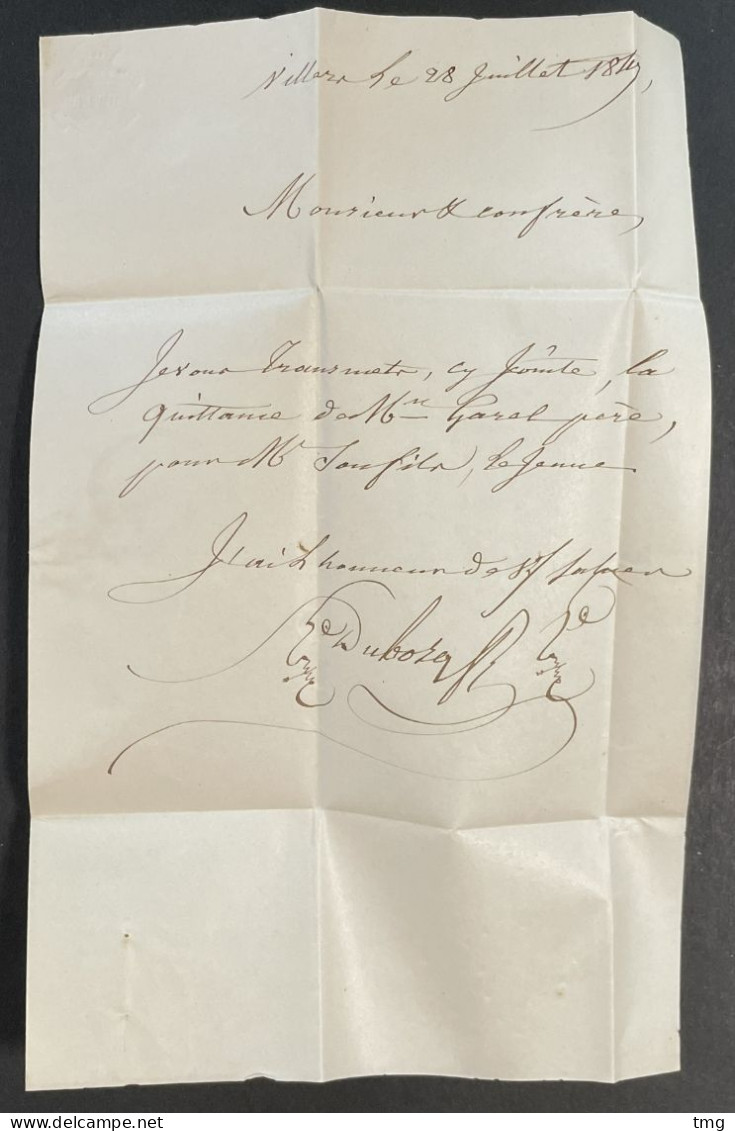 Villers le 28 Juillet 1849,
Monsieur & confrère,
Je vous transmets, cy Jointe, la
quittance de Mr Garel père,
pour Mr Son fils, le Jeune
J'ai l'honneur de Vs saluer
Duboscq
tmg